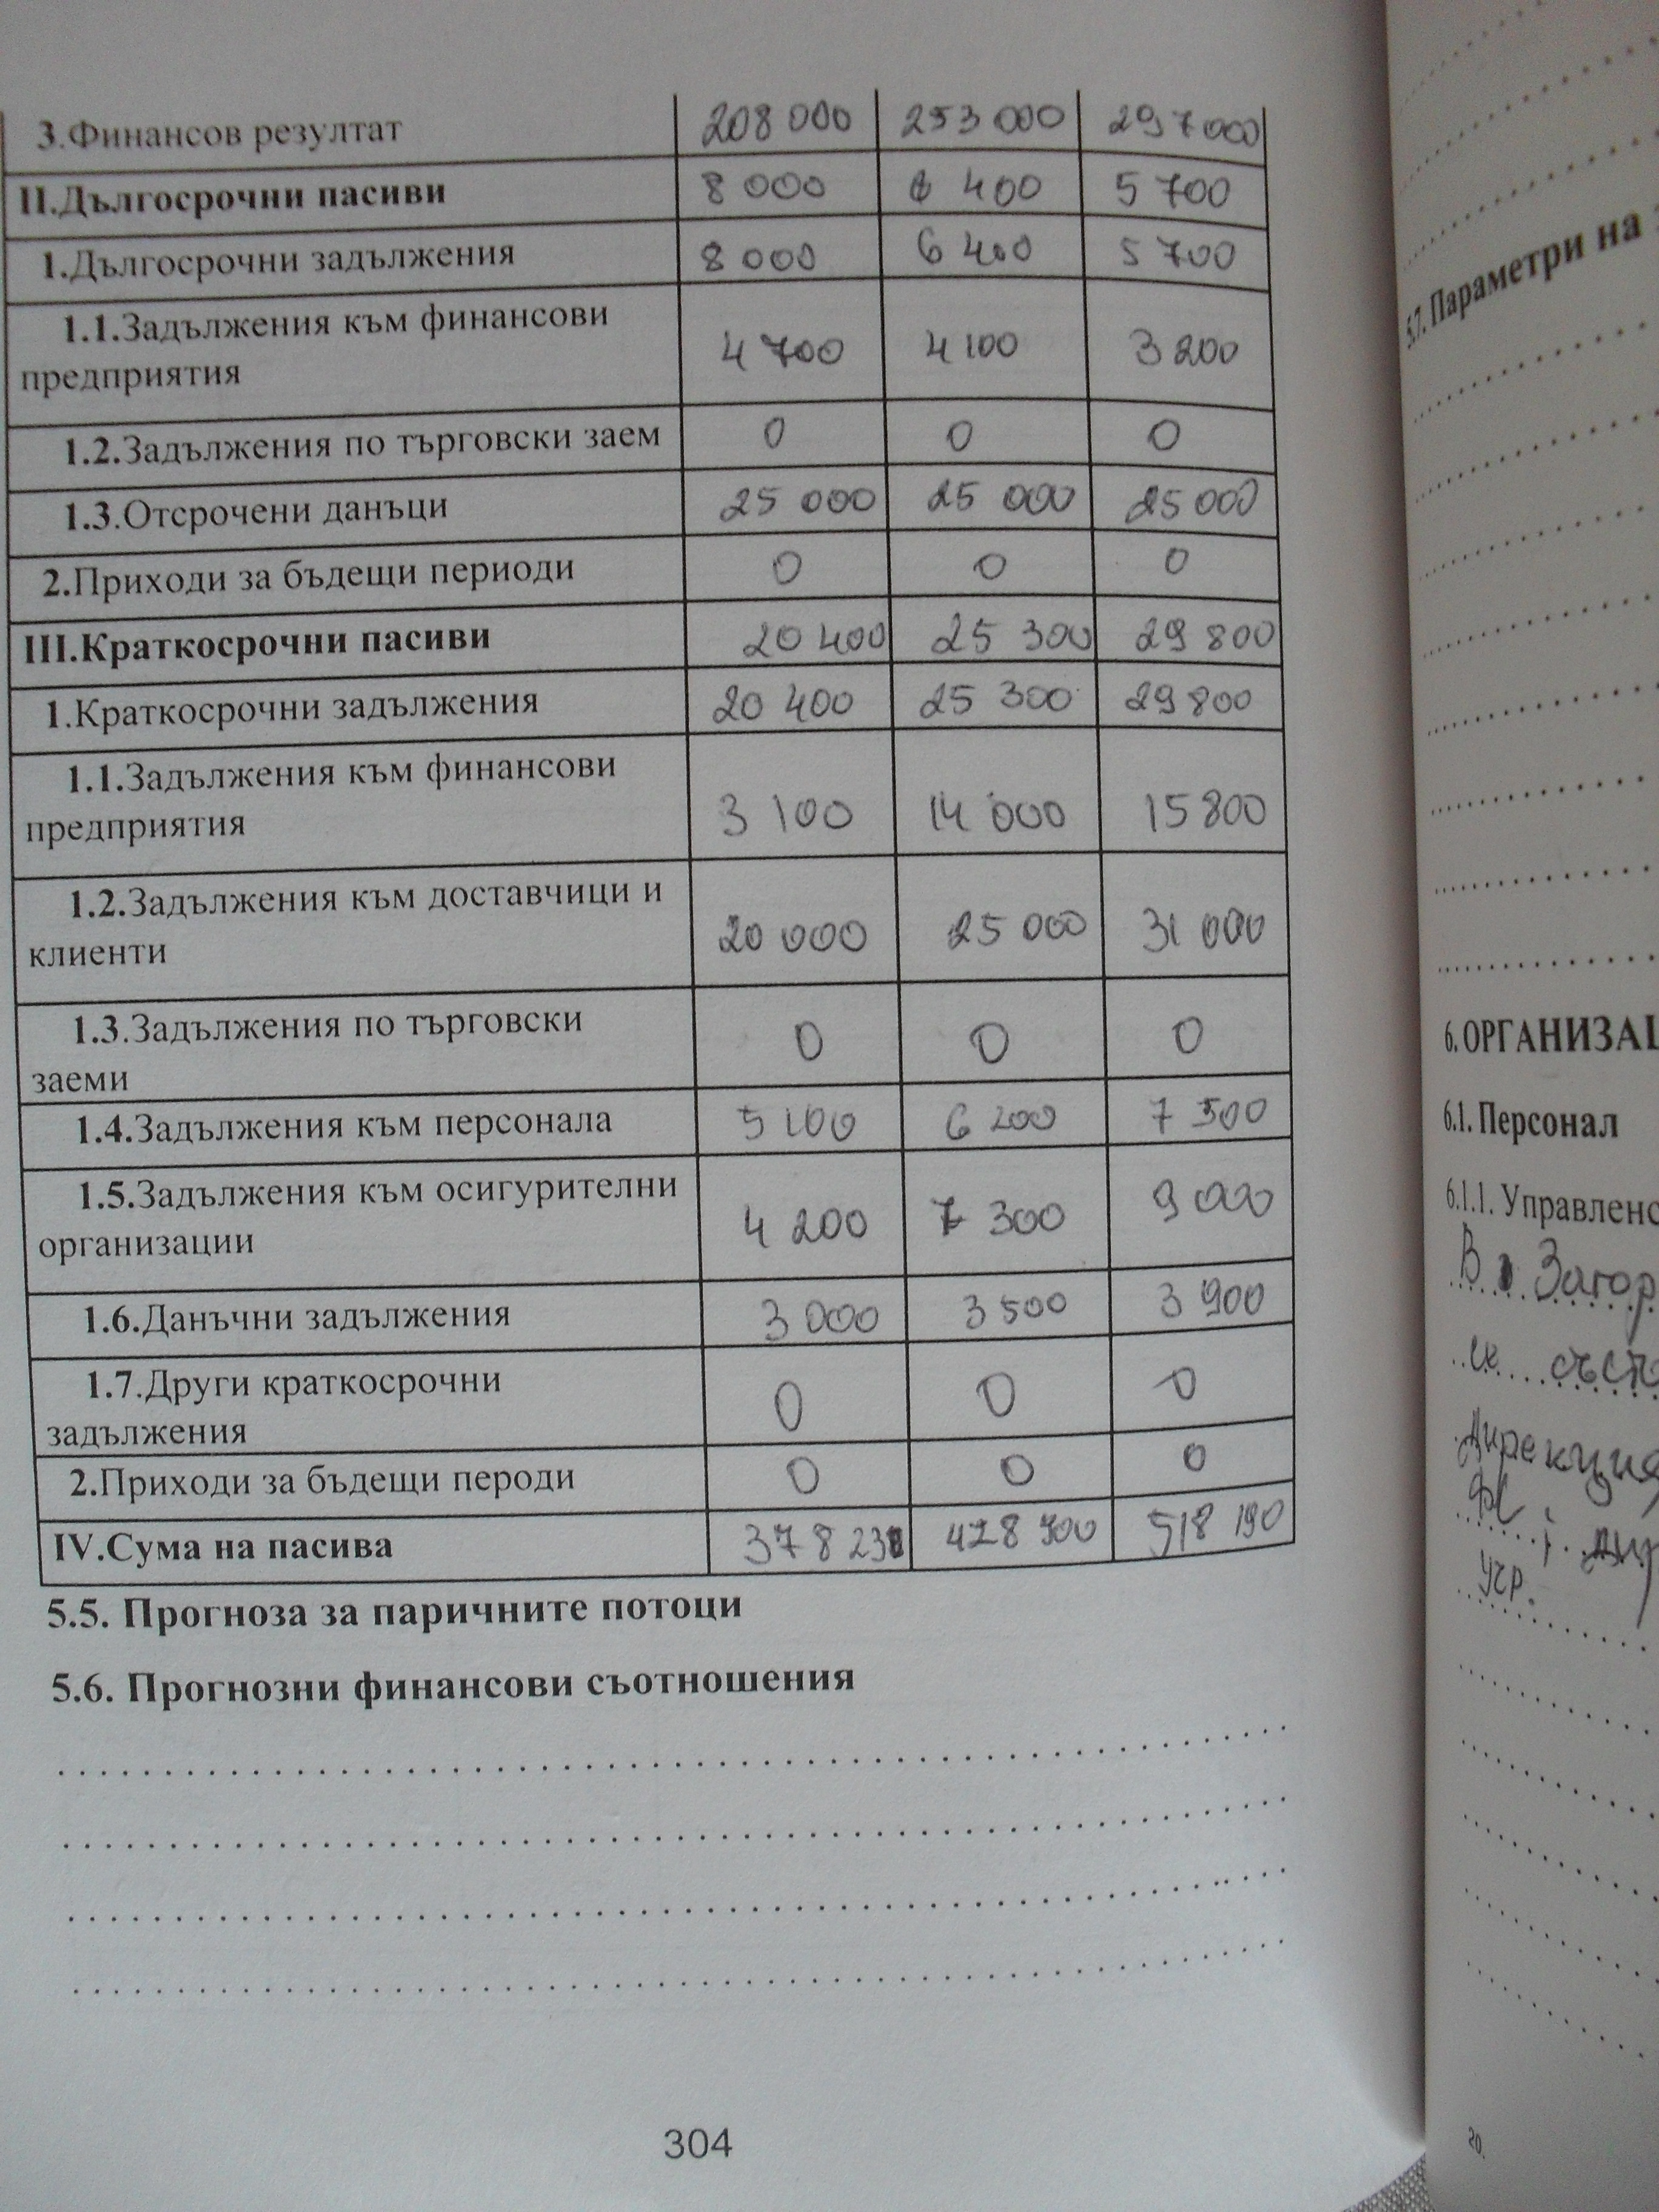 3.Финансов резултат 208 000 253 000 297 000
II.Дългосрочни пасиви 8 000 6 400 5 700
1.Дългосрочни задължения 8 000 6 400 5 700
1.1.Задължения към финансови
предприятия 4 700 4 100 3 200
1.2.Задължения по търговски заем 0 0 0
1.3.Отсрочени данъци 25 000 25 000 25 000
2.Приходи за бъдещи периоди 0 0 0
III.Краткосрочни пасиви 20 400 25 300 29 800
1.Краткосрочни задължения 20 400 25 300 29 800
1.1.Задължения към финансови
предприятия 3 100 14 000 15 800
1.2.Задължения към доставчици и
клиенти 20 000 25 000 31 000
1.3.Задължения по търговски
заеми 0 0 0
1.4.Задължения към персонала 5 100 6 200 7 500
1.5.Задължения към осигурителни
организации 4 200 7 300 9 000
1.6.Данъчни задължения 3 000 3 500 3 900
1.7.Други краткосрочни
задължения 0 0 0
2.Приходи за бъдещи пероди 0 0 0
IV.Сума на пасива 378 231 428 900 518 190
5.5. Прогноза за паричните потоци
5.6. Прогнозни финансови съотношения
304
5.7. Параметри на
6.ОРГАНИЗАЦ
6.1. Персонал
6.1.1. Управленс
В. Загор
се състо
Дирекция